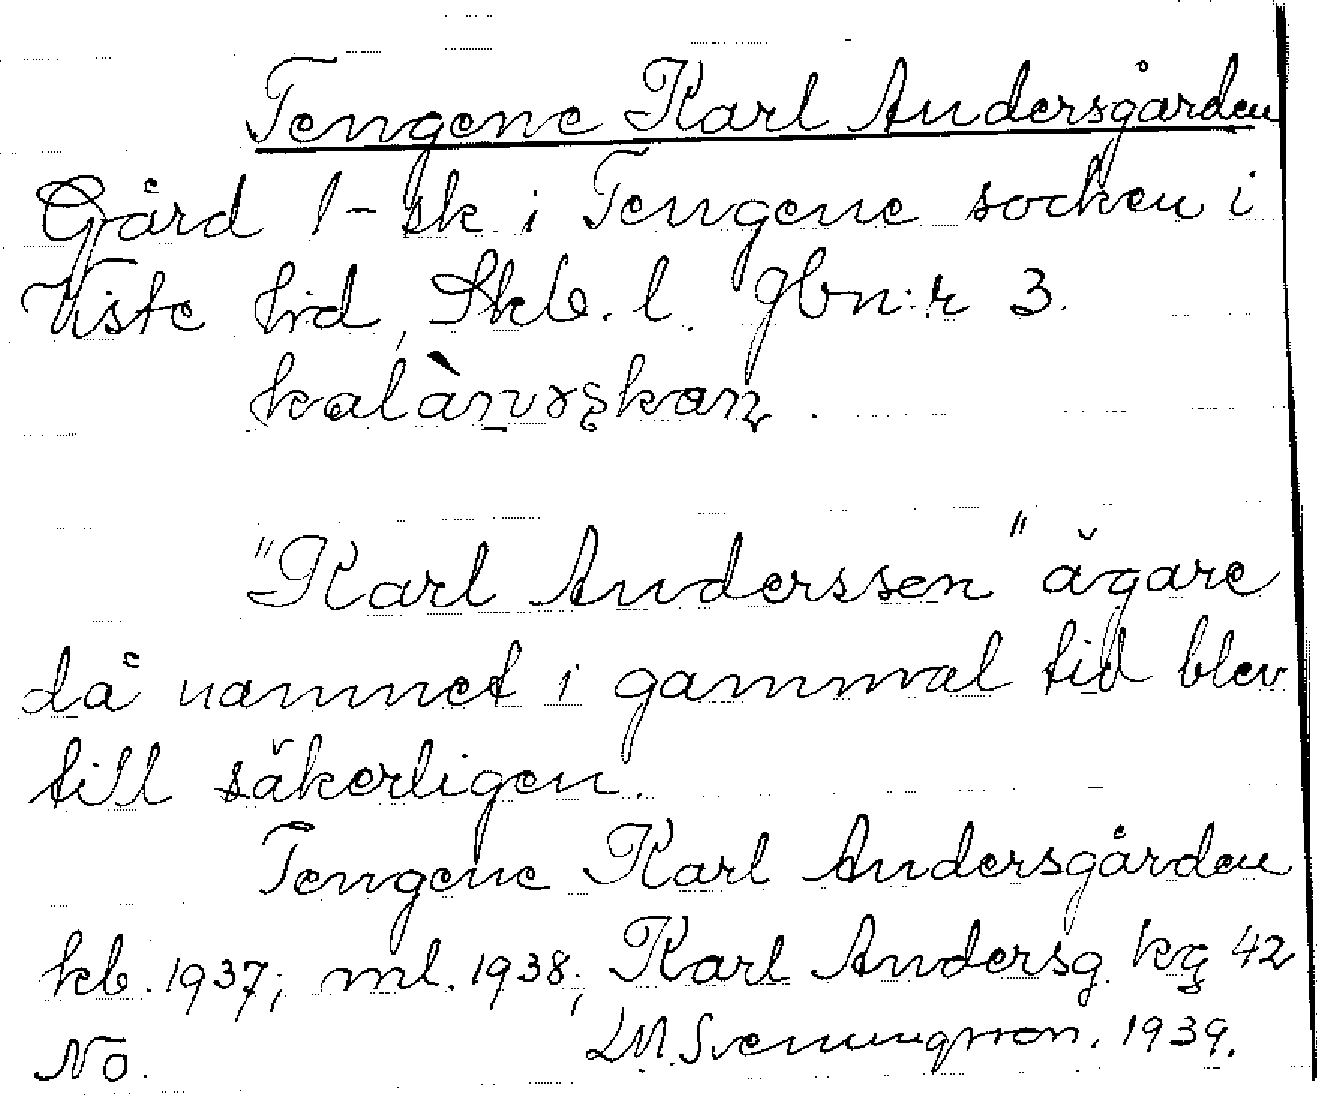 Tengene Karl Andersgården
Gård 1-sk i Tengene socken i
Viste hd, Skb. l. gbn:r 3.
"Karl Anderssen" ägare
då namnet i gammal tid blev
till säkerligen.
Tengene Karl Andersgården
kb. 1937; ml. 1938; Karl Andersg. kg 42
NÖ. LM. Svenungsson. 1939.